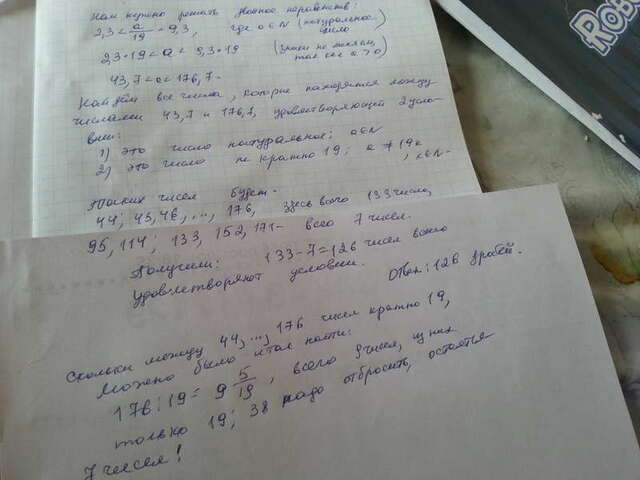 Нам нужно решать двойное неравенство:
2,3 < a/19 < 9,3, где a∈N (натуральное число)
2,3·19 < a < 9,3·19 (знаки не меняем, так как 19 > 0)
43,7 < a < 176,7.
Найдём все числа, которые находятся между
числами 43,7 и 176,7, удовлетворяющий 2 усло-
вия:
1) это число натуральное; a∈N
2) это число не кратно 19; a ≠ 19к, к∈N.
Таких чисел будет
44; 45, 46, ..., 176, здесь всего 133 числа,
95, 114; 133, 152, 171 - всего 7 чисел.
Получили: 133-7=126 чисел всего
удовлетворяют условию.
Ответ: 126 дробей.
Сколько между 44, ..., 176 чисел кратно 19,
можно было и так найти:
176:19 = 9 5/19, всего 9 чисел, из них
только 19; 38 надо отбросить, остаётся
7 чисел!
ROBO